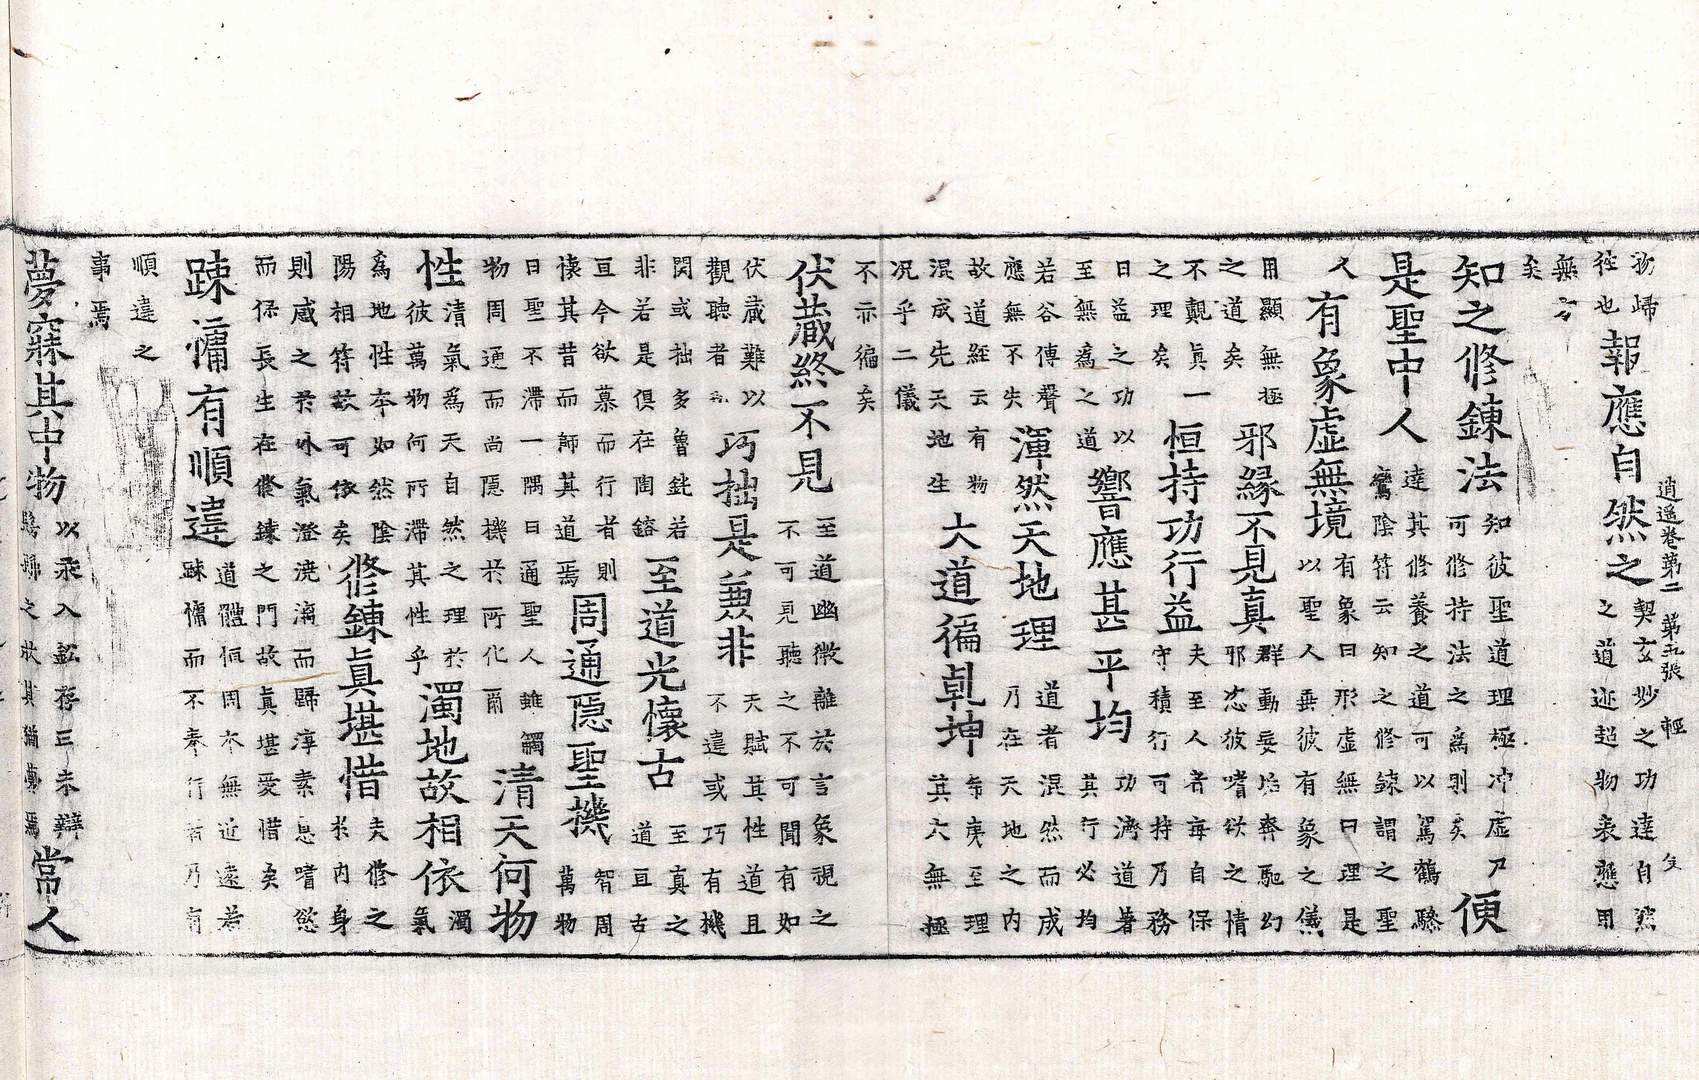 物歸
徑也
報應自然之
契玄妙之功達自然
之道迹超物表應用
無方
矣
逍遥卷第二 第五張 輕
知之修鍊法
知彼聖道理極冲虛
可修持法之為則矣
便
是聖中人
達其修養之道可以駕鶴驂
鸞陰符云知之修鍊謂之聖
人
有象虛無境
有象曰形虛無曰理是
以聖人垂彼有象之儀
用顯無極
之道矣
邪緣不見真
群動妄焰奔馳幻
邪恣彼嗜欲之情
不覩真一
之理矣
恒持功行益
夫至人者每自保
守積行可持乃務
日益之功以
至無為之道
響應甚平均
功濟道著
其行必均
若谷傳聲
應無不失
渾然天地理
道者混然而成
乃在天地之内
故道經云有物
混成先天地生
大道徧乹坤
希夷至理
其大無極
况乎二儀
不示徧矣
伏藏終不見
至道幽微離於言象視之
不可見聽之不可聞有如
伏藏難以
觀聽者
巧拙是兼非
天賦其性道且
不違或巧有機
関或拙多魯鈍若
非若是俱在陶鎔
至道光懷古
至真之
道亘古
亘今欲慕而行者則
懷其昔而師其道焉
周通隱聖機
智周
萬物
曰聖不滯一隅曰通聖人雖
物周通而尚隱機於所化爾
清天何物
性
清氣為天自然之理於
彼萬物何所滯其性乎
濁地故相依
濁
氣
為地性本如然陰
陽相符故可依矣
修鍊真堪惜
夫修之
於内身
則感之於外氣澄澆漓而歸淳素息嗜慾
而保長生在修鍊之門故真堪愛惜矣
踈慵有順違
道體恒周本無近遠若
踈慵而不奉行者乃有
順違之
事焉
夢寐其中物
常人